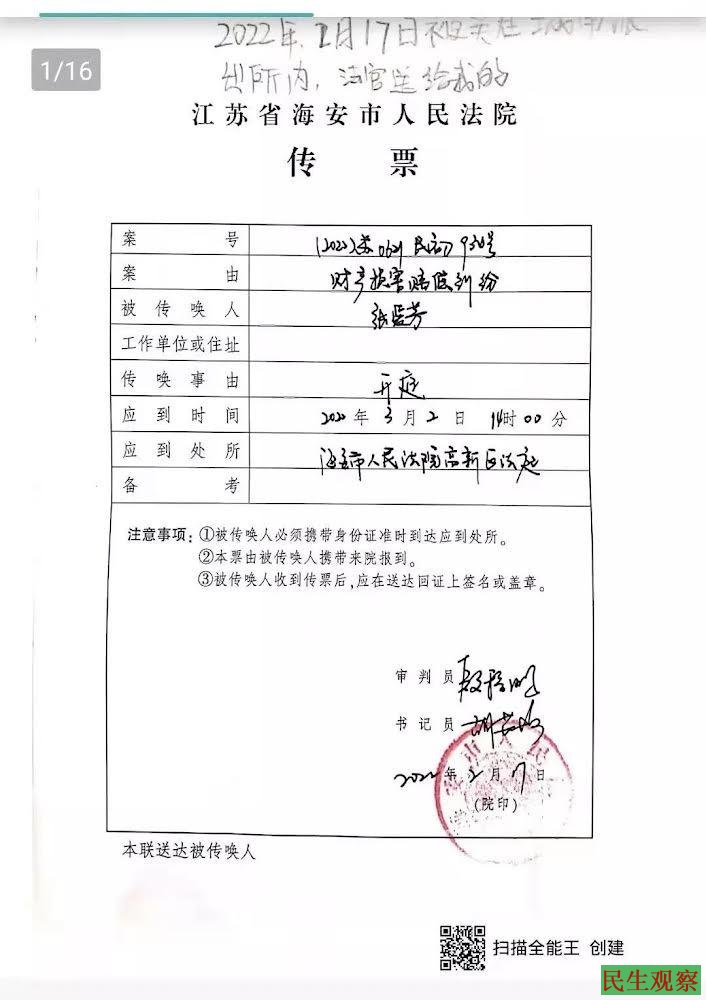 1/16
2022年2月17日
出所内，法官送给我的
江苏省海安市人民法院
传 票
案 号 (2022)苏0621民初930号
案 由 财产损害赔偿纠纷
被 传 唤 人 张
工作单位或住址
传 唤 事 由 开庭
应 到 时 间 2022年3月2日 14时00分
应 到 处 所 海安市人民法院高新区法庭
备 考
注意事项：①被传唤人必须携带身份证准时到达应到处所。
②本票由被传唤人携带来院报到。
③被传唤人收到传票后，应在送达回证上签名或盖章。
审 判 员
书 记 员
2022年2月17日
(院印)
本联送达被传唤人
扫描全能王 创建
民生观察